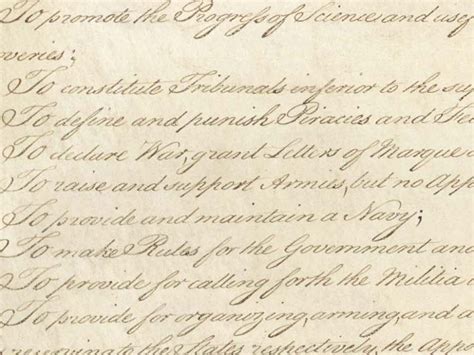 To promote the Progress of Science and usef
overies;
To constitute Tribunals inferior to the sup
To define and punish Piracies and Fel
To declare War, grant Letters of Marque a
To raise and support Armies, but no App
To provide and maintain a Navy;
To make Rules for the Government and
To provide for calling forth the Militia
To provide for organizing, arming, and a
reserving to the States respectively, the App